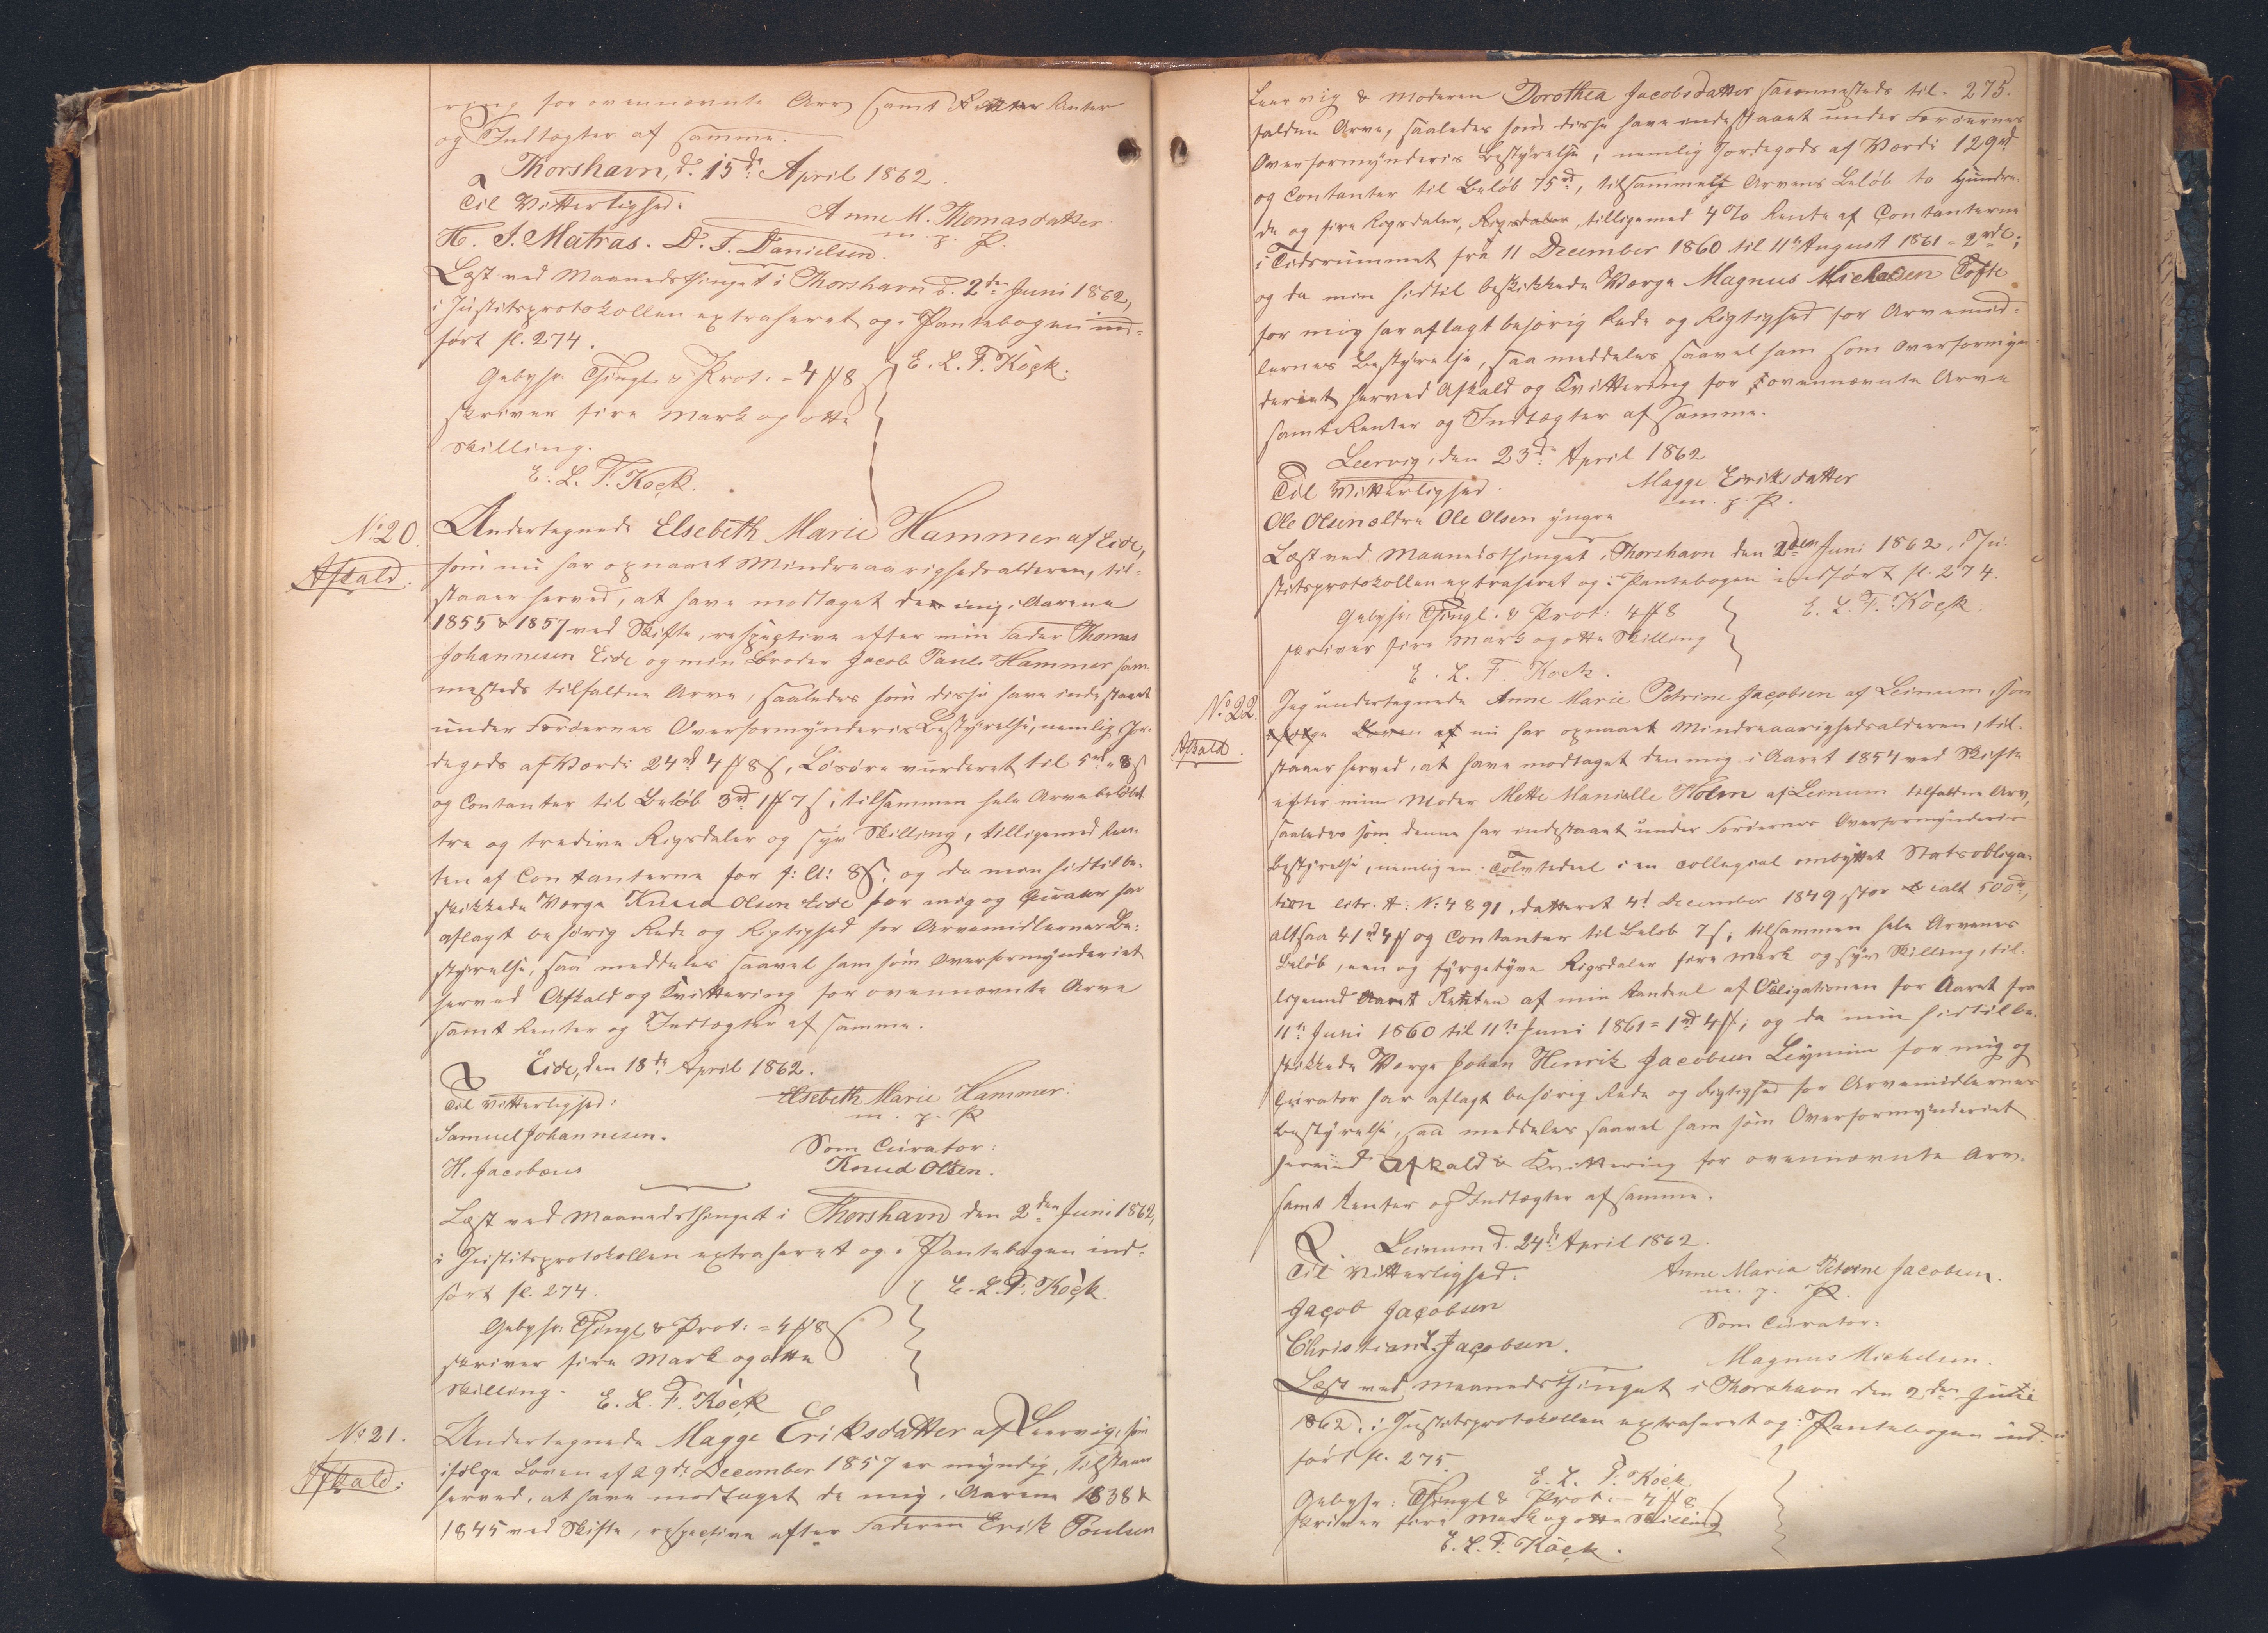 ring for ovennævnte Arv samt Renter
og Indtægter af samme.
Thorshavn, d. 15de April 1862.
Til Vitterlighed:
Anne M. Thomasdatter
m. p. P.
H. J. Matras. D. J. Danielsen.
Læst ved Maanedsthinget i Thorshavn d. 2den Juni 1862,
i Justitsprotokollen extraheret og i Pantebogen ind-
ført fl. 274.
E. L. F. Køck.
Gebyhr Thingl. & Prot. = 4 ℳ 8 ß
skriver fire Mark og otte
Skilling.
E. L. F. Kock.
No 20.
Afkald.
Undertegnede Elsebeth Marie Hammer af Eide,
som nu har opnaaet Mindreaarighedsalderen, til-
staaer herved, at have modtaget den mig i Aarene
1855 & 1857 ved Skifte, respective efter min Fader Thomas
Johannesen Eide og min Broder Jacob Pauli Hammer sam-
mesteds tilfaldne Arve, saaledes som disse have indestaaet
under Færøernes Overformynderies Bestyrelse, nemlig Jor-
degods af Værdi 24 rd 4 ℳ 8 ß, Løsøre vurderet til 5 rd " 8 ß
og Contanter til Beløb 3 rd 1 ℳ 7 ß, tilsammen hele Arvebeløbet
tre og tredive Rigsdaler og syv Skilling, tilligemed Ren-
ten af Contanterne for f: A: 8 ß; og da min hidtil be-
skikkede Værge Knud Olsen Eide for mig og Curator har
aflagt behørig Rede og Rigtighed for Arvemidlernes Be-
styrelse, saa meddeles saavel ham som Overformynderiet
herved Afkald og Kvittering for ovennævnte Arve
samt Renter og Indtægter af samme.
Eide, den 18de April 1862.
Til Vitterlighed:
Elsebeth Marie Hammer.
m. p. P
Samuel Johannesen.
Som Curator:
H. Jacobæus
Knud Olsen.
Læst ved Maanedsthinget i Thorshavn den 2den Juni 1862,
i Justitsprotokollen extraheret og i Pantebogen ind-
ført fl. 274.
E. L. F. Køck.
Gebyhr Thingl. & Prot. = 4 ℳ 8 ß
skriver fire Mark og otte
Skilling.
E. L. F. Køck
No 21.
Afkald.
Undertegnede Magge Eriksdatter af Leervig, som
ifølge Loven af 29de December 1857 er myndig, tilstaaer
herved, at have modtaget de mig i Aarene 1838 &
1845 ved Skifte, respective efter Faderen Erik Poulsen
Leervig & Moderen Dorothea Jacobsdatter sammesteds til- 275.
faldne Arve, saaledes som disse have indestaaet under Færøernes
Overformynderies Bestyrelse, nemlig Jordegods af Værdi 129 rd
og Contanter til Beløb 75 rd, tilsammen Arvens Beløb to Hundre-
de og fire Rigsdaler, Rigsdaler, tilligemed 4% Rente af Contanterne
i Tidsrummet fra 11 December 1860 til 11te August 1861 = 2 rd;
og da min hidtil beskikkede Værge Magnus Michelsen Tofte
for mig har aflagt behørig Rede og Rigtighed for Arvemid-
lernes Bestyrelse, saa meddeles saavel ham som Overformyn-
deriet herved Afkald og Kvittering for ovennævnte Arve
samt Renter og Indtægter af samme.
Leervig, den 23de April 1862
Til Vitterlighed.
Magge Eriksdatter
m. p. P.
Ole Olsen ældre Ole Olsen yngre
Læst ved Maanedsthinget i Thorshavn den 2den Juni 1862, i Ju-
stitsprotokollen extraheret og i Pantebogen indført fl. 274.
E. L. F. Køck.
Gebyhr: Thingl. & Prot: 4 ℳ 8
skriver fire Mark og otte Skilling
E. L. F. Kock.
No 22.
Afkald.
Jeg undertegnede Anne Marie Petrine Jacobsen af Leinum, som
ifølge Loven af nu har opnaaet Mindreaarighedsalderen, til-
staaer herved, at have modtaget den mig i Aaret 1854 ved Skifte
efter min Moder Mette Marielle Holm af Leinum tilfaldne Arv,
saaledes som denne har indestaaet under Færøernes Overformynderies
Bestyrelse, nemlig en Tolvtedeel i en collegial ombyttet Statsobliga-
tion Litr. A: No 4891, datteret 4d December 1849, stor ialt 500 rd,
altsaa 41 rd 4 ℳ og Contanter til Beløb 7 ß, tilsammen hele Arvens
Beløb, een og fyrgetyve Rigsdaler fire Mark og syv Skilling, til-
ligemed Renten af min Andeel af Obligationen for Aaret fra
11te Juni 1860 til 11te Juni 1861 = 1 rd 4 ℳ; og da min hidtil be-
skikkede Værge Johan Henrik Jacobsen Leynum for mig og
Curator har aflagt behørig Rede og Rigtighed for Arvemidlernes
Bestyrelse, saa meddeles saavel ham som Overformynderiet
herved Afkald & Kvittering for ovennævnte Arv
samt Renter og Indtægter af samme.
Leinum d. 24de April 1862.
Til Vitterlighed.
Anne Maria Petrine Jacobsen.
m. p. P.
Jacob Jacobsen
Som Curator:
Christian Jacobsen.
Magnus Michelsen.
Læst ved Maanedsthinget i Thorshavn den 2den Juni
1862, i Justitsprotokollen extraheret og i Pantebogen ind-
ført fl. 275.
E. L. F. Køck.
Gebyhr: Thingl & Prot. = 4 ℳ 8 ß
skriver fire Mark og otte Skilling
E. L. F. Køck.